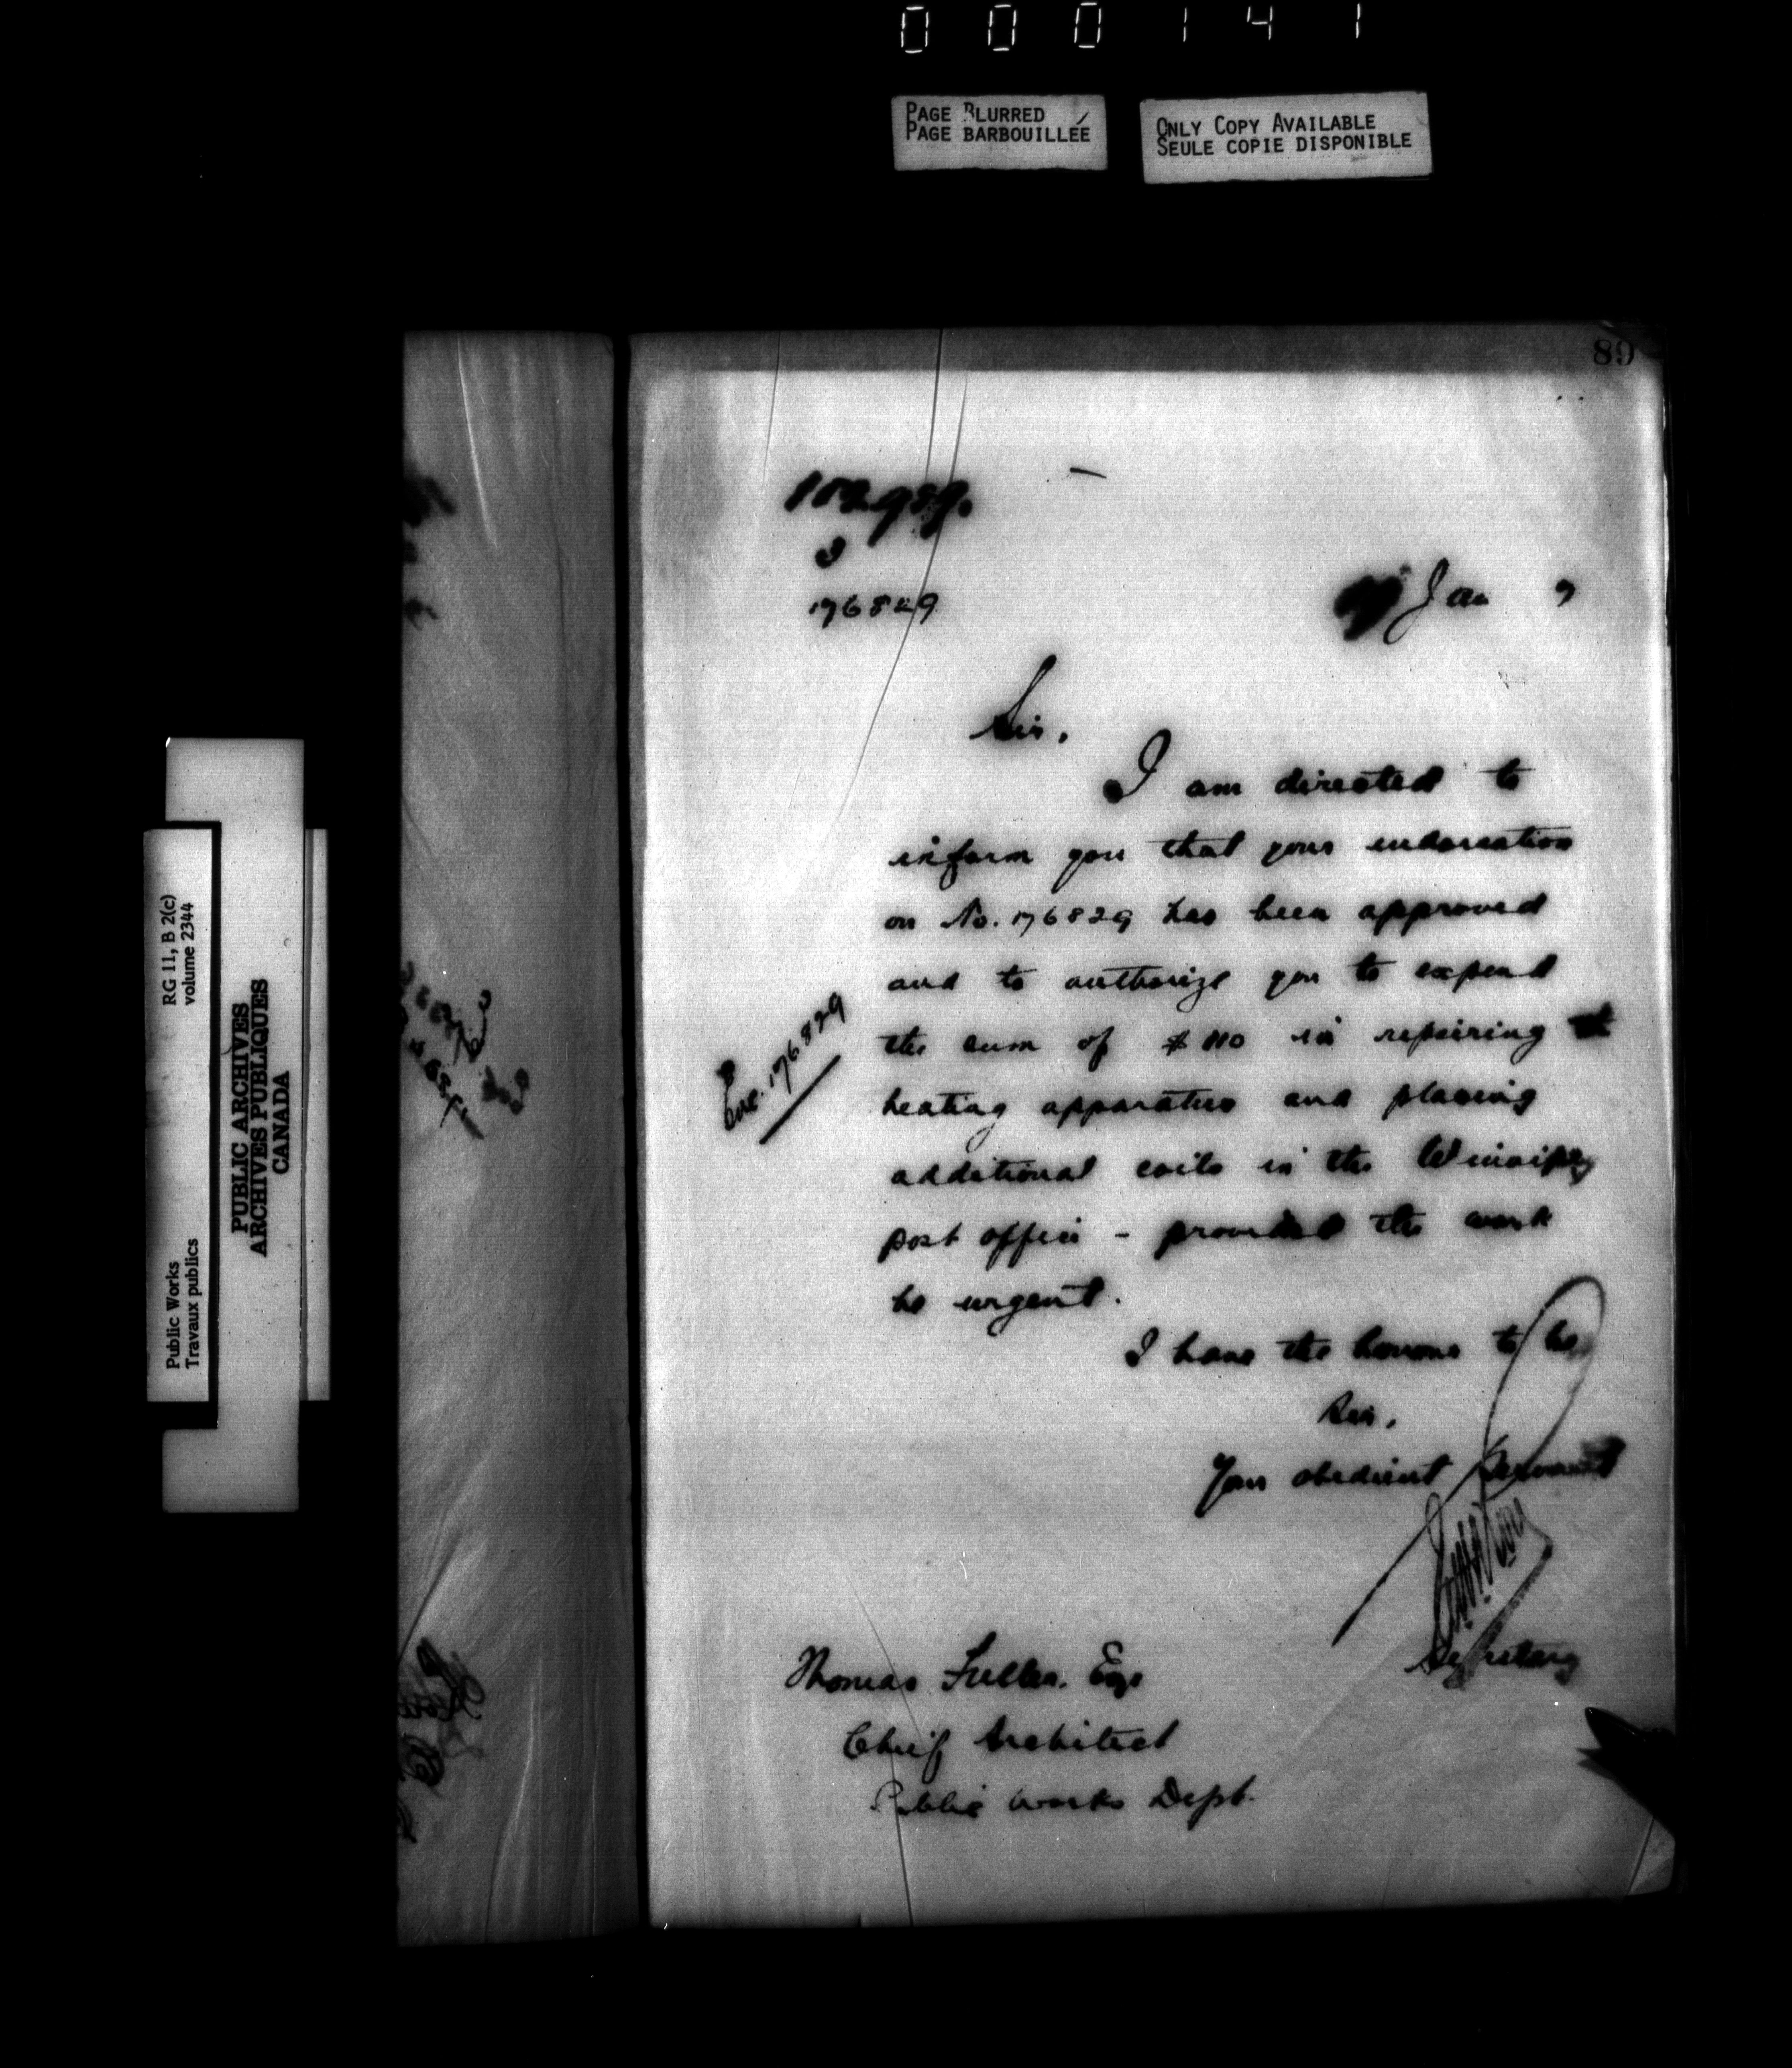 000141
PAGE BLURRED
PAGE BARBOUILLÉE
ONLY COPY AVAILABLE
SEULE COPIE DISPONIBLE
89
176829
Jan 7
Sir,
I am directed to
inform you that your endorsation
on No. 176829 has been approved
and to authorize you to expend
the sum of $110 in repairing
heating apparatus and placing
additional coils in the Winnipeg
post office - provided the work
be urgent.
Enc. 176829
I have the honour to be,
Sir,
Your obedient servant
Secretary
Thomas Fuller. Esqr
Chief Architect
Public Works Dept.
RG 11, B 2(c)
volume 2344
Public Works
Travaux publics
PUBLIC ARCHIVES
ARCHIVES PUBLIQUES
CANADA